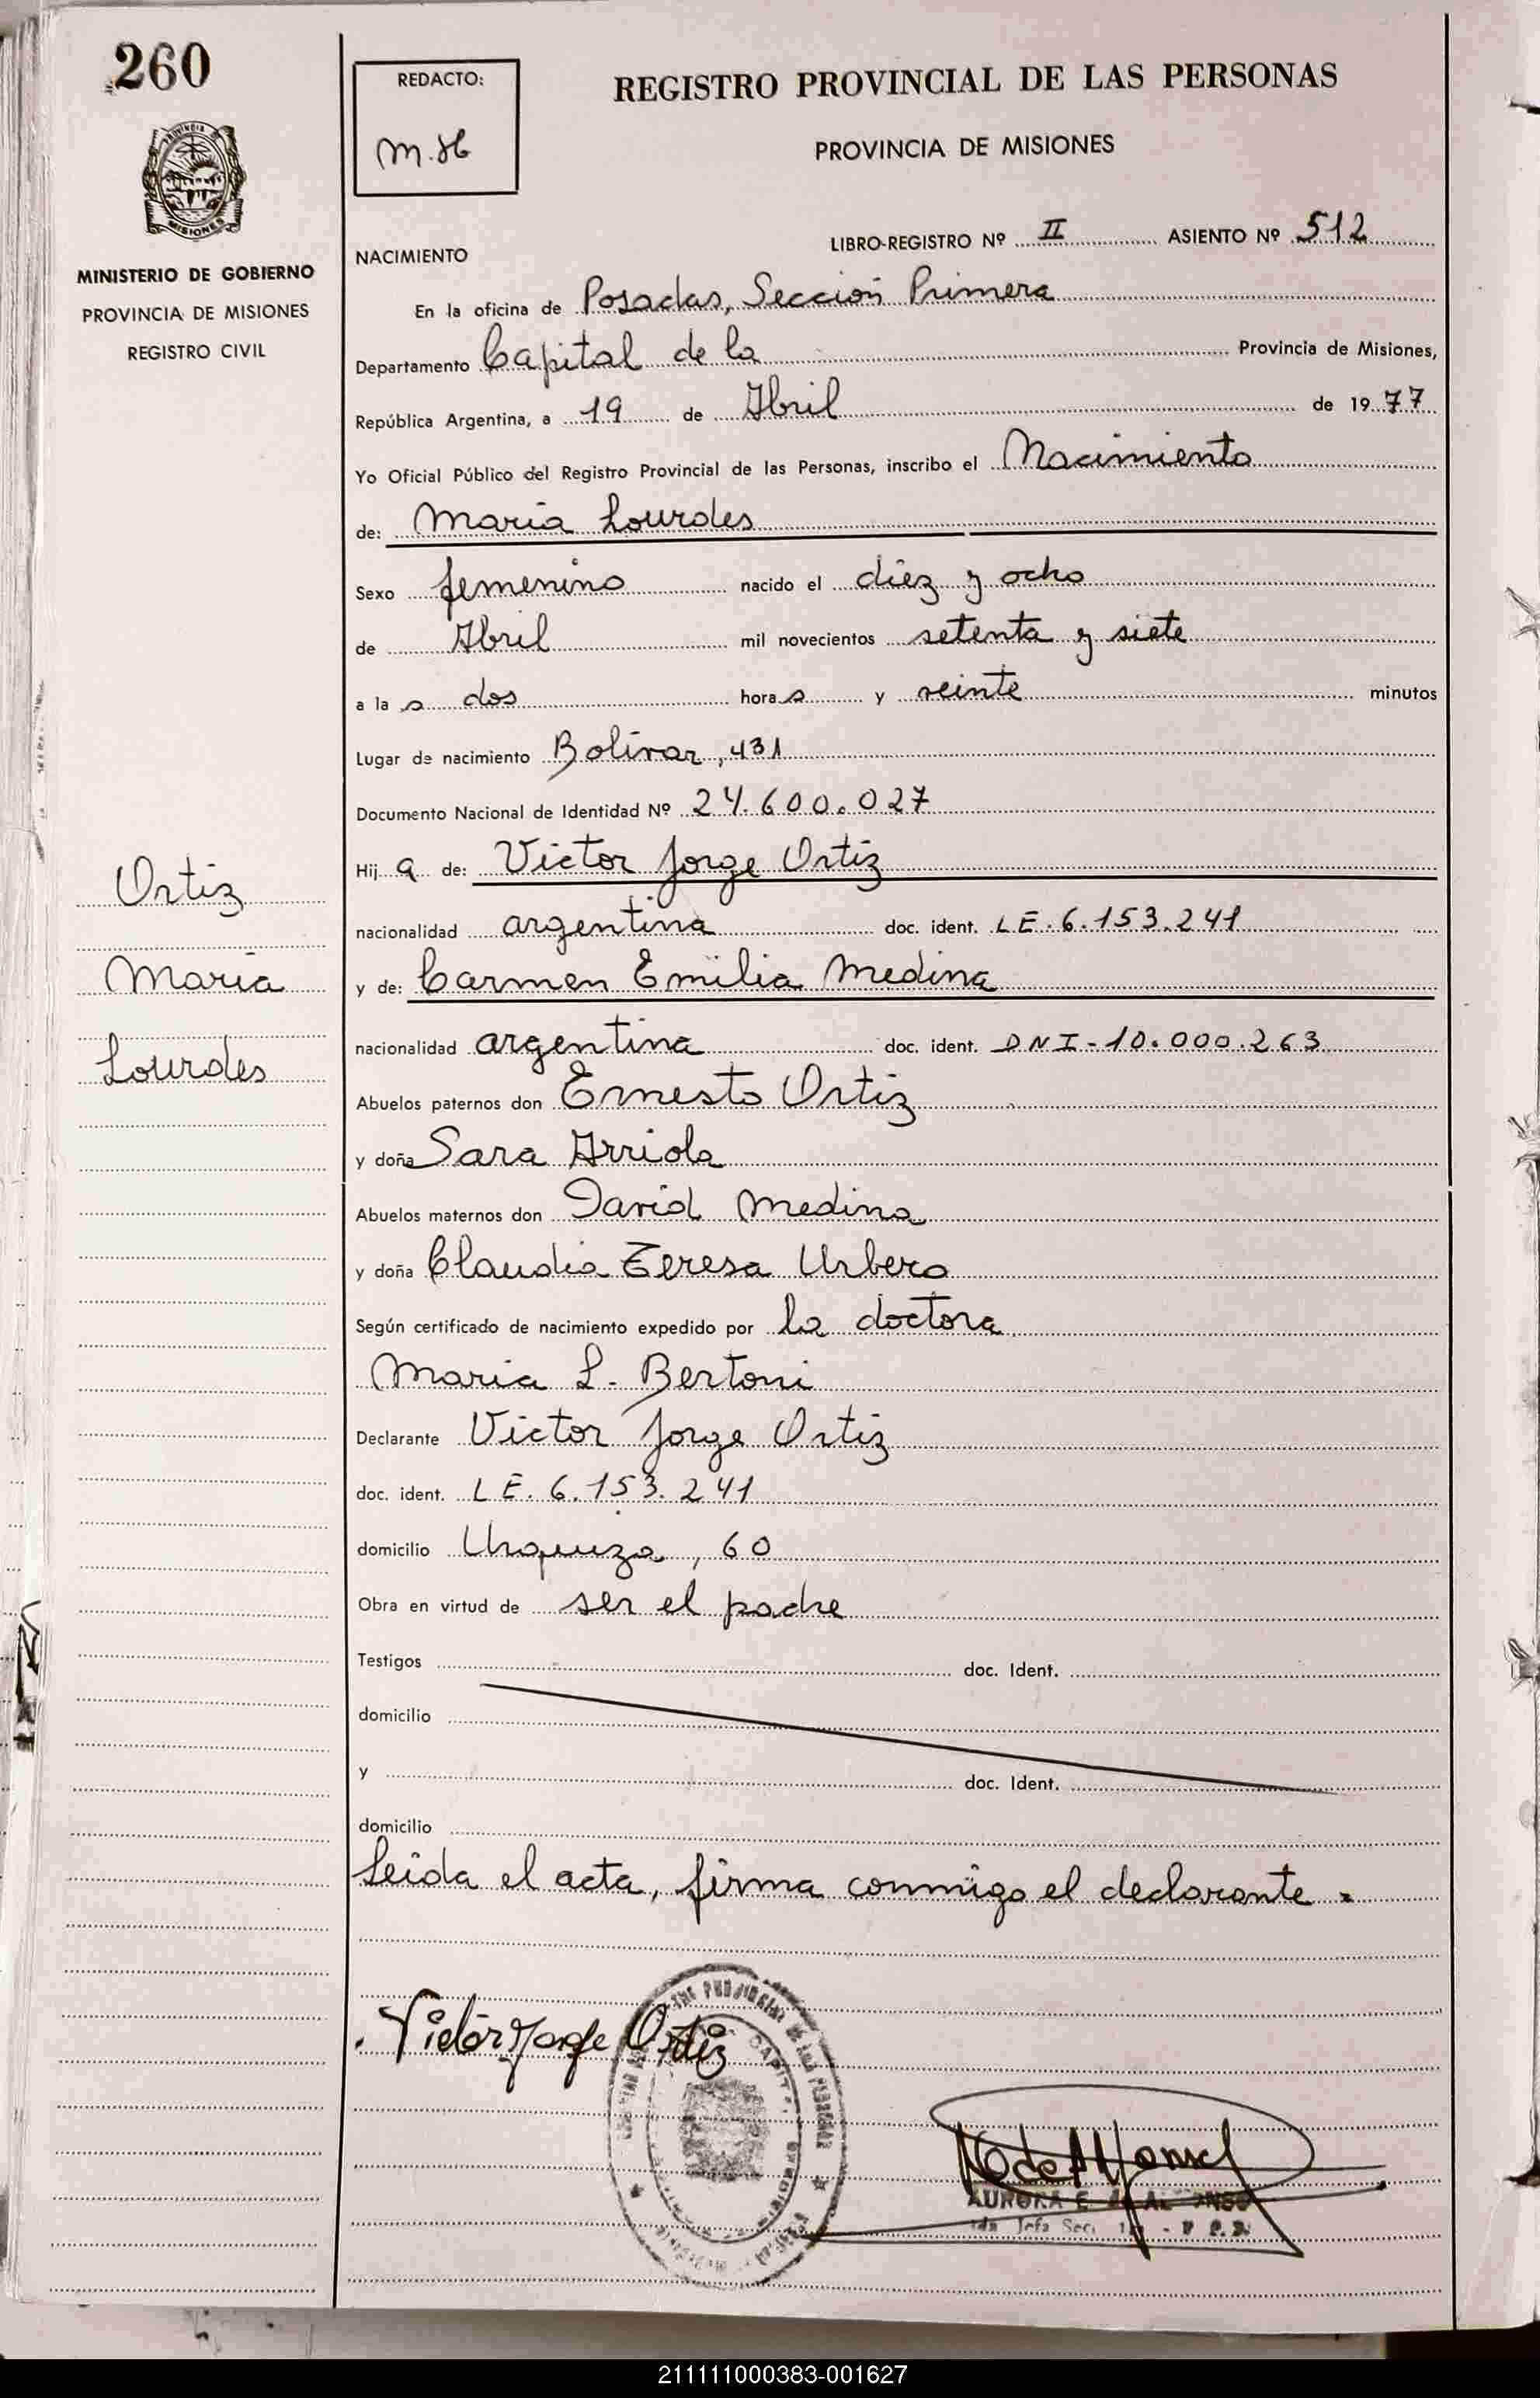 260
REDACTO:
REGISTRO PROVINCIAL DE LAS PERSONAS
PROVINCIA DE MISIONES
MISIONES
MINISTERIO DE GOBIERNO
PROVINCIA DE MISIONES
REGISTRO CIVIL
LIBRO-REGISTRO Nº II ASIENTO Nº 512
NACIMIENTO
En la oficina de Posadas, Sección Primera
Departamento Capital de la Provincia de Misiones,
República Argentina, a 19 de Abril de 1977
Yo Oficial Público del Registro Provincial de las Personas, inscribo el Nacimiento
de: María Lourdes
Sexo femenino nacido el diez y ocho
de Abril mil novecientos setenta y siete
a las dos horas y veinte minutos
Lugar de nacimiento Bolívar, 431
Documento Nacional de Identidad Nº 24.600.027
Hija de: Victor Jorge Ortiz
nacionalidad argentina doc. ident. LE. 6.153.241
y de: Carmen Emilia Medina
nacionalidad argentina doc. ident. DNI-10.000.263
Abuelos paternos don Ernesto Ortiz
y doña Sara Arriola
Abuelos maternos don David Medina
y doña Claudia Teresa Urbero
Según certificado de nacimiento expedido por la doctora
María L. Bertoni
Declarante Victor Jorge Ortiz
doc. ident. LE. 6.153.241
domicilio Urquiza, 60
Obra en virtud de ser el padre
Testigos doc. Ident.
domicilio
y doc. Ident.
domicilio
Leida el acta, firma conmigo el declarante.
Ortiz
María
Lourdes
Victor Jorge Ortiz
AURORA E.
211111000383-001627